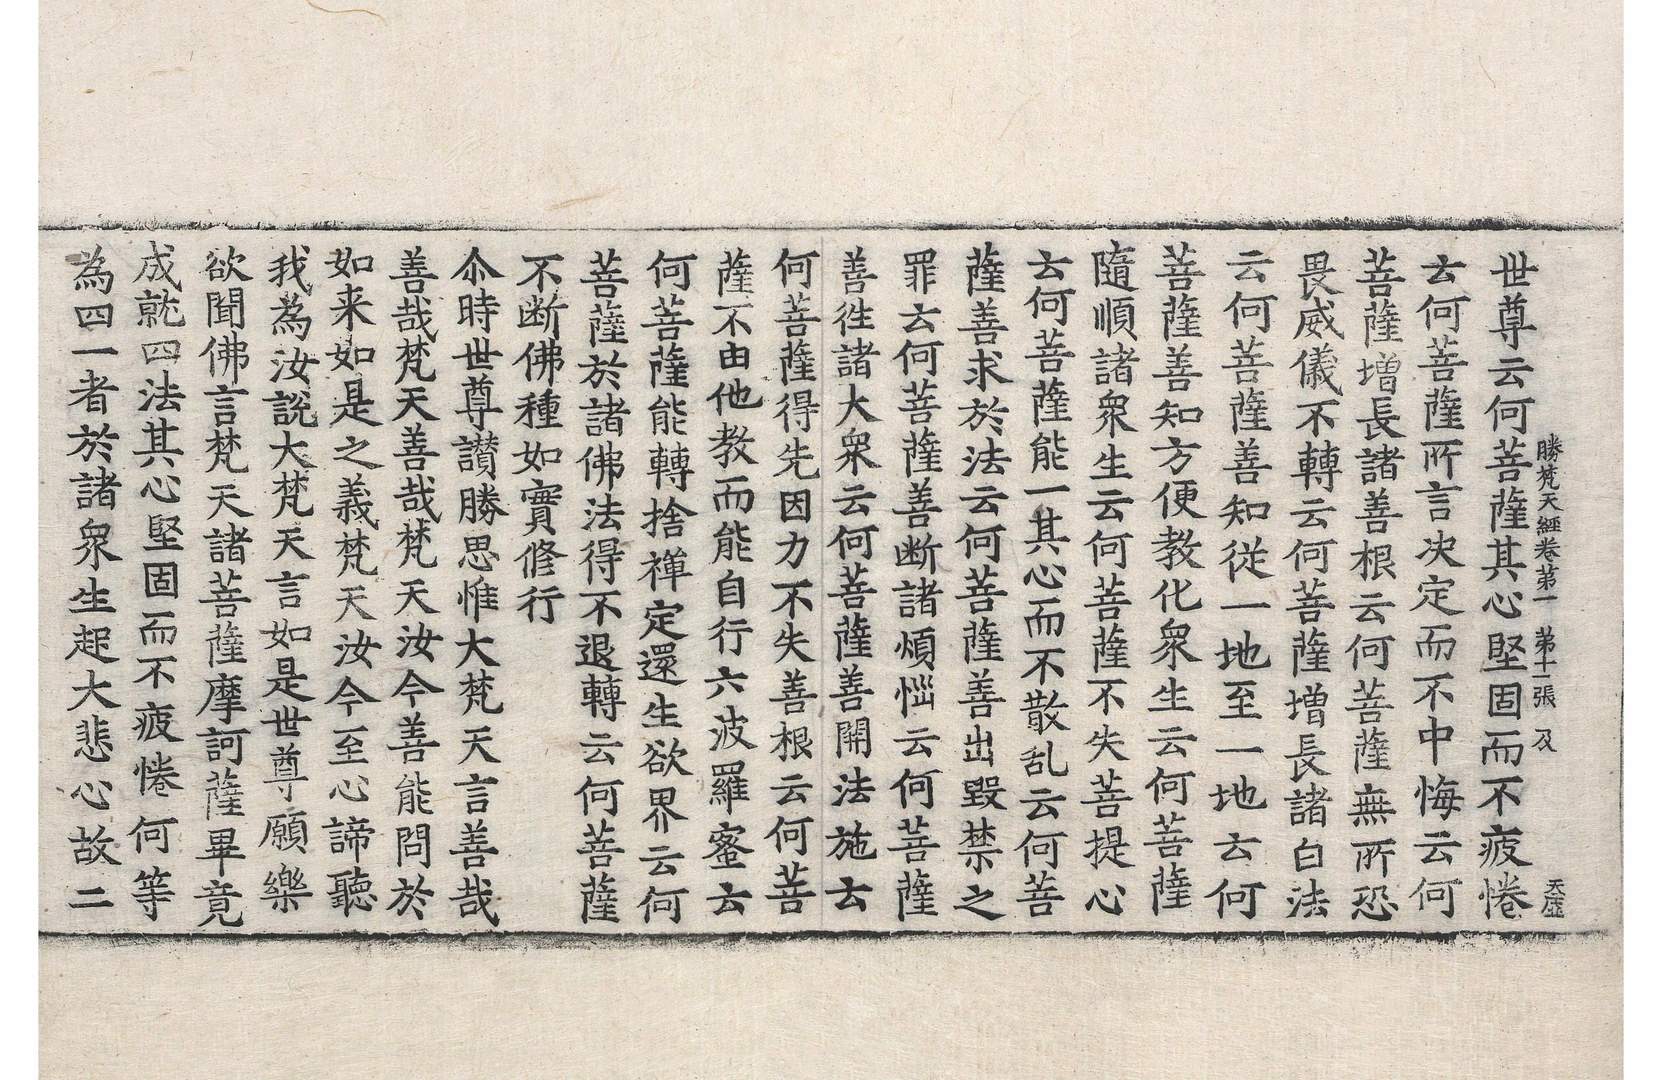 勝梵天經卷第一　第十一張　及
天虛
世尊云何菩薩其心堅固而不疲惓
云何菩薩所言决定而不中悔云何
菩薩增長諸善根云何菩薩無所恐
畏威儀不轉云何菩薩增長諸白法
云何菩薩善知從一地至一地云何
菩薩善知方便教化衆生云何菩薩
隨順諸衆生云何菩薩不失菩提心
云何菩薩能一其心而不散乱云何菩
薩善求於法云何菩薩善出毀禁之
罪云何菩薩善断諸煩惱云何菩薩
善徃諸大衆云何菩薩善開法施云
何菩薩得先因力不失善根云何菩
薩不由他教而能自行六波羅蜜云
何菩薩能轉捨禅定還生欲界云何
菩薩於諸佛法得不退轉云何菩薩
不断佛種如實修行
尒時世尊讃勝思惟大梵天言善哉
善哉梵天善哉梵天汝今善能問於
如来如是之義梵天汝今至心諦聽
我為汝說大梵天言如是世尊願樂
欲聞佛言梵天諸菩薩摩訶薩畢竟
成就四法其心堅固而不疲惓何等
為四一者於諸衆生起大悲心故二